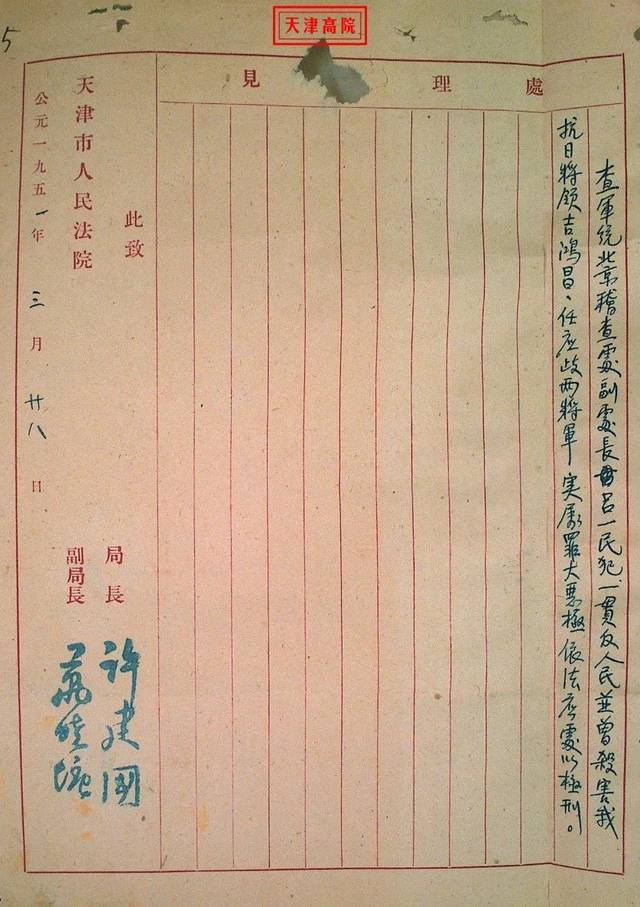 天津高院
5
處理見
查軍統北京稽查處副處長吕一民犯一貫反人民並曾殺害我
抗日將領吉鴻昌、任应歧两將軍実屬罪大悪極依法应處以極刑。
此致
天津市人民法院
局長 許建國
副局長 萬曉塘
公元一九五一年三月廿八日